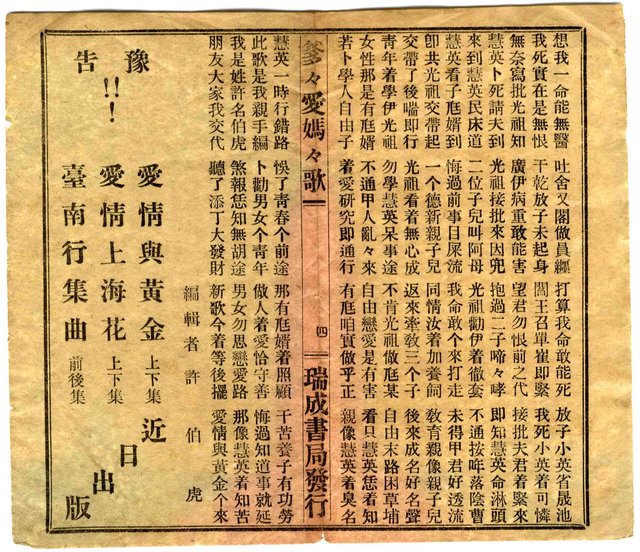 想我一命能無醫 吐舍又閣做員纒 打算我命敢能死 放子小英省晟池
我死實在是無恨 干乾放子未起身 閻王召單崔即緊 我死小英着可憐
無奈寫批光祖知 廣伊病重敢能害 望君勿恨前之代 接批夫君着緊來
慧英卜死請夫到 光祖接批來因兜 抱過二子啼々哮 即知慧英命淋頭
來到慧英民床道 二位子兒叫阿母 光祖勸伊着徹套 不通按哖落陰曹
慧英看子尫婿到 悔過前事目屎流 我命敢个來打走 未得甲君好透流
即共光祖交帶起 一个德新親子兒 同情汝着加養飼 敎育親像親子兒
交帶了後喘即行 光祖看着無心成 返來牽敎三个子 後來成名好名聲
青年着學伊光祖 勿學慧英呆事途 不肯光祖做尫某 自由末路困草埔
女性那是有尫婿 不通甲人亂々來 自由戀愛是有害 看只慧英恁着知
若卜學人自由子 着愛研究即通行 有尫咱實做乎正 親像慧英着臭名
爹々愛媽々歌 四 瑞成書局發行
慧英一時行錯路 悞了青春个前途 那有尫婿着照顧 干苦養子有功勞
此歌是我親手編 卜勸男女个青年 做人着愛恰守善 悔過知道事就延
我是姓許名伯虎 煞報恁知無胡途 男女勿思戀愛路 那像慧英着知苦
朋友大家我交代 聽了添丁大發財 新歌今着等後擺 愛情與黃金个來
編輯者 許伯虎
豫告!!!
愛情與黃金 上下集
愛情上海花 上下集
臺南行集曲 前後集
近日出版